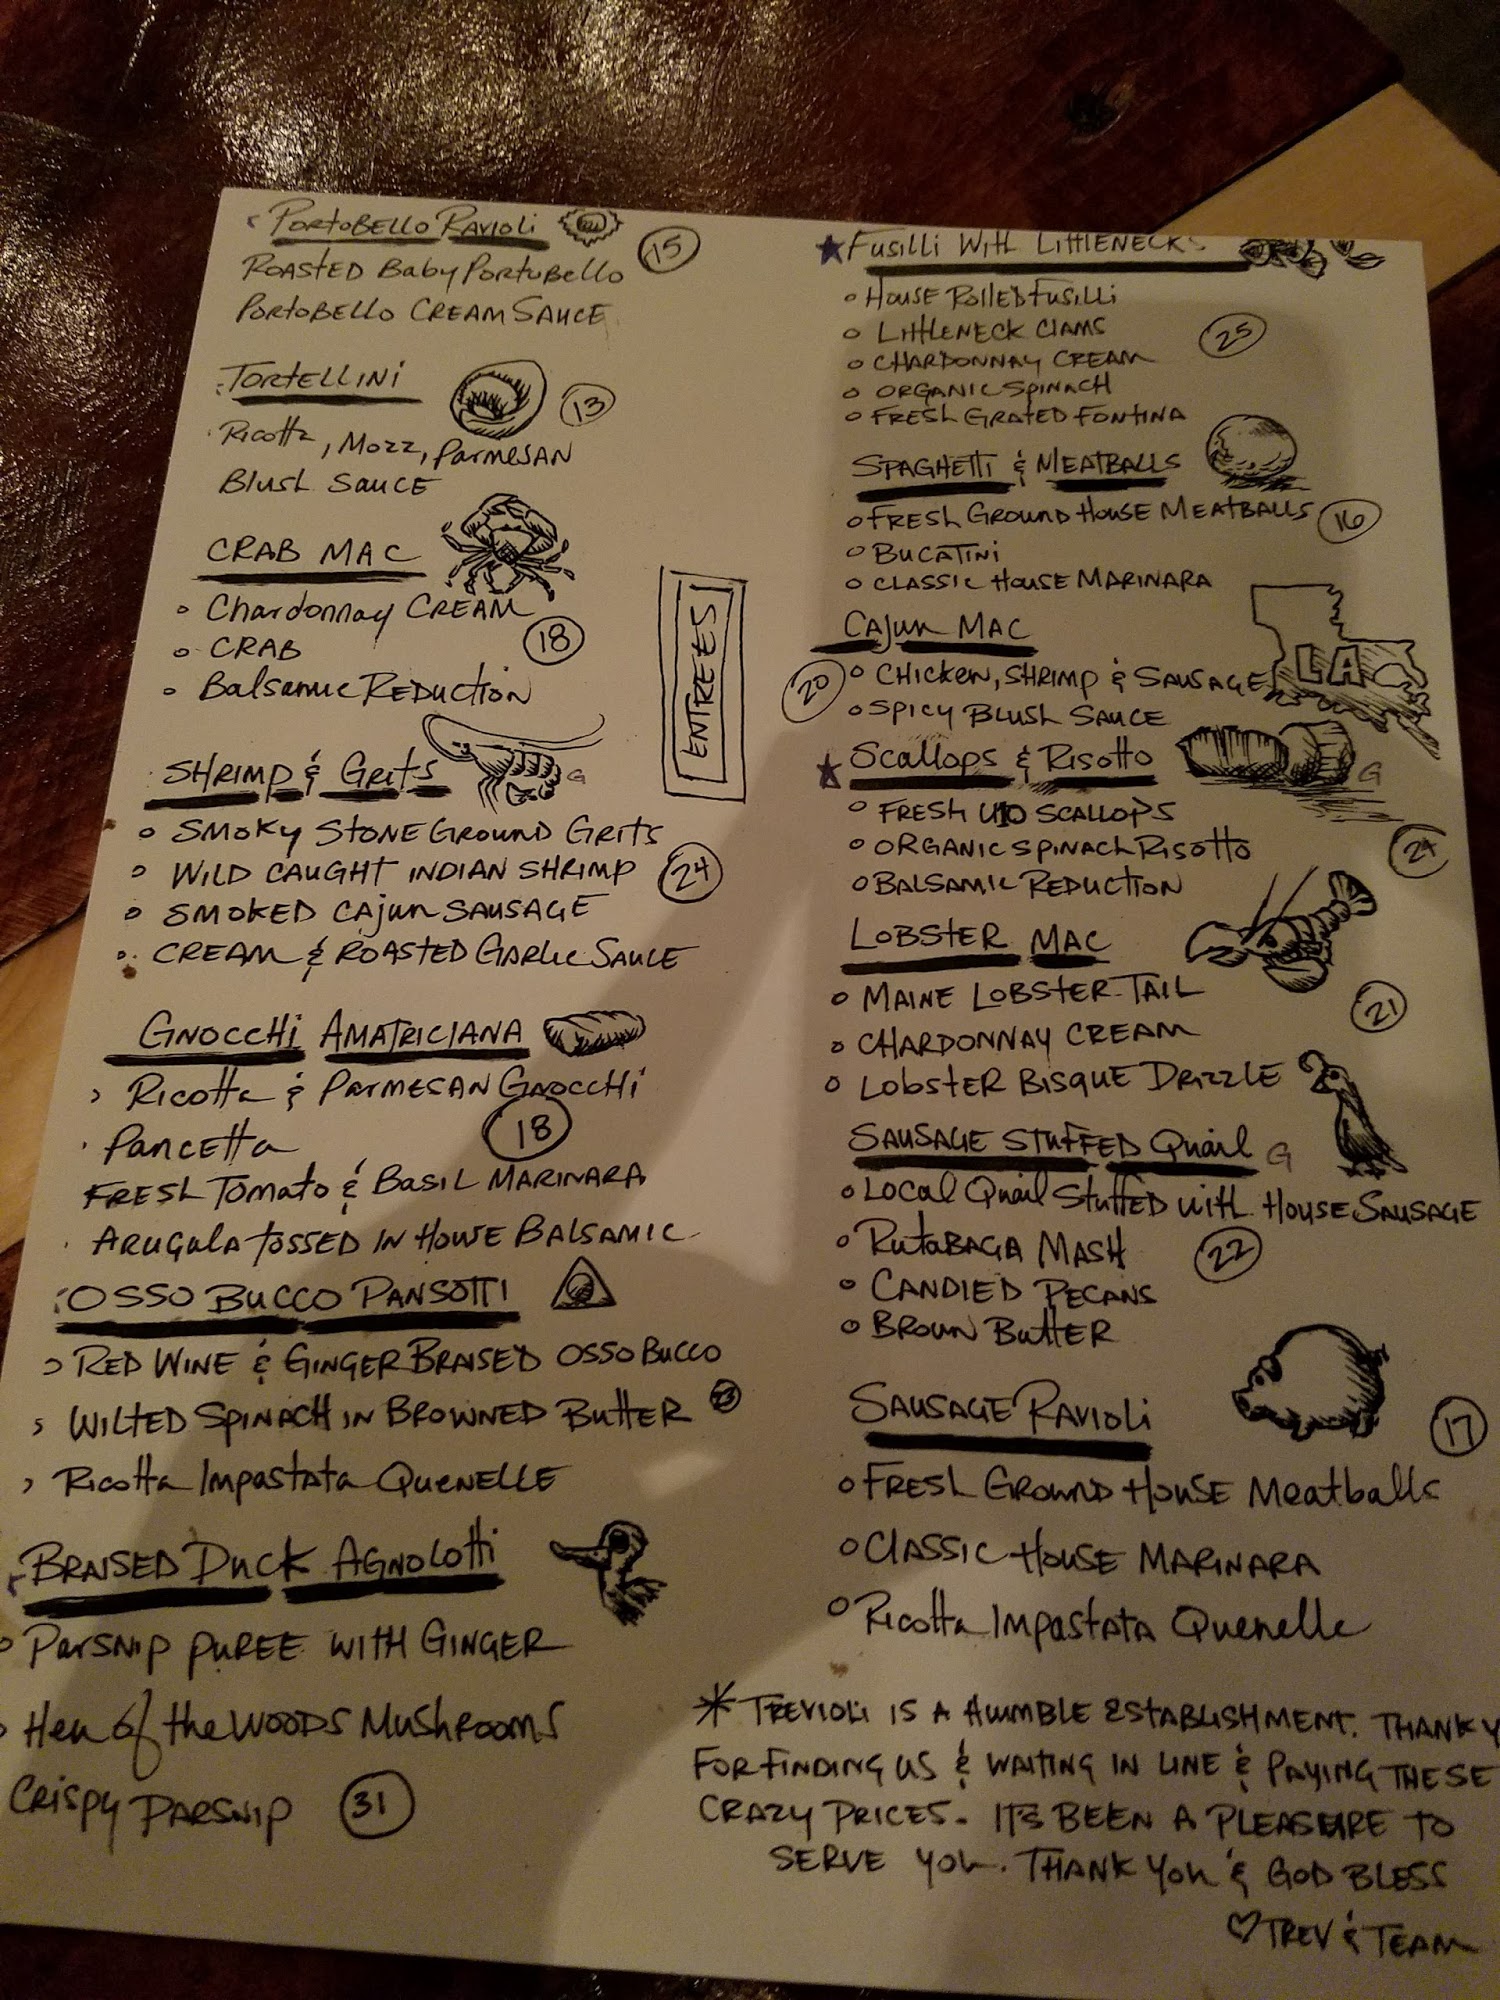 Portobello Ravioli
15
Roasted Baby Portobello
Portobello Cream Sauce
Tortellini
13
Ricotta, Mozz, Parmesan
Blush Sauce
Crab Mac
Chardonnay Cream
18
Crab
Balsamic Reduction
Shrimp & Grits
G
Smoky Stone Ground Grits
Wild Caught Indian Shrimp
24
Smoked Cajun Sausage
Cream & Roasted Garlic Sauce
Gnocchi Amatriciana
Ricotta & Parmesan Gnocchi
Pancetta
18
Fresh Tomato & Basil Marinara
Arugula tossed in House Balsamic
Osso Bucco Pansotti
Red Wine & Ginger Braised Osso Bucco
Wilted Spinach in Browned Butter
23
Ricotta Impastata Quenelle
Braised Duck Agnolotti
Parsnip Puree with Ginger
Hen of the Woods Mushrooms
Crispy Parsnip
31
Entrees
★ Fusilli With Littlenecks
House Rolled Fusilli
Littleneck Clams
25
Chardonnay Cream
Organic Spinach
Fresh Grated Fontina
Spaghetti & Meatballs
Fresh Ground House Meatballs
16
Bucatini
Classic House Marinara
Cajun Mac
LA
20
Chicken, Shrimp & Sausage
Spicy Blush Sauce
★ Scallops & Risotto
G
Fresh U10 Scallops
Organic Spinach Risotto
Balsamic Reduction
Lobster Mac
Maine Lobster Tail
21
Chardonnay Cream
Lobster Bisque Drizzle
Sausage Stuffed Quail
G
Local Quail Stuffed with House Sausage
Rutabaga Mash
22
Candied Pecans
Brown Butter
Sausage Ravioli
17
Fresh Ground House Meatballs
Classic House Marinara
Ricotta Impastata Quenelle
* Trevioli is a humble establishment. Thank y
for finding us & waiting in line & paying these
crazy prices. It's been a pleasure to
serve you. Thank you & God Bless
♡ Trev & Team